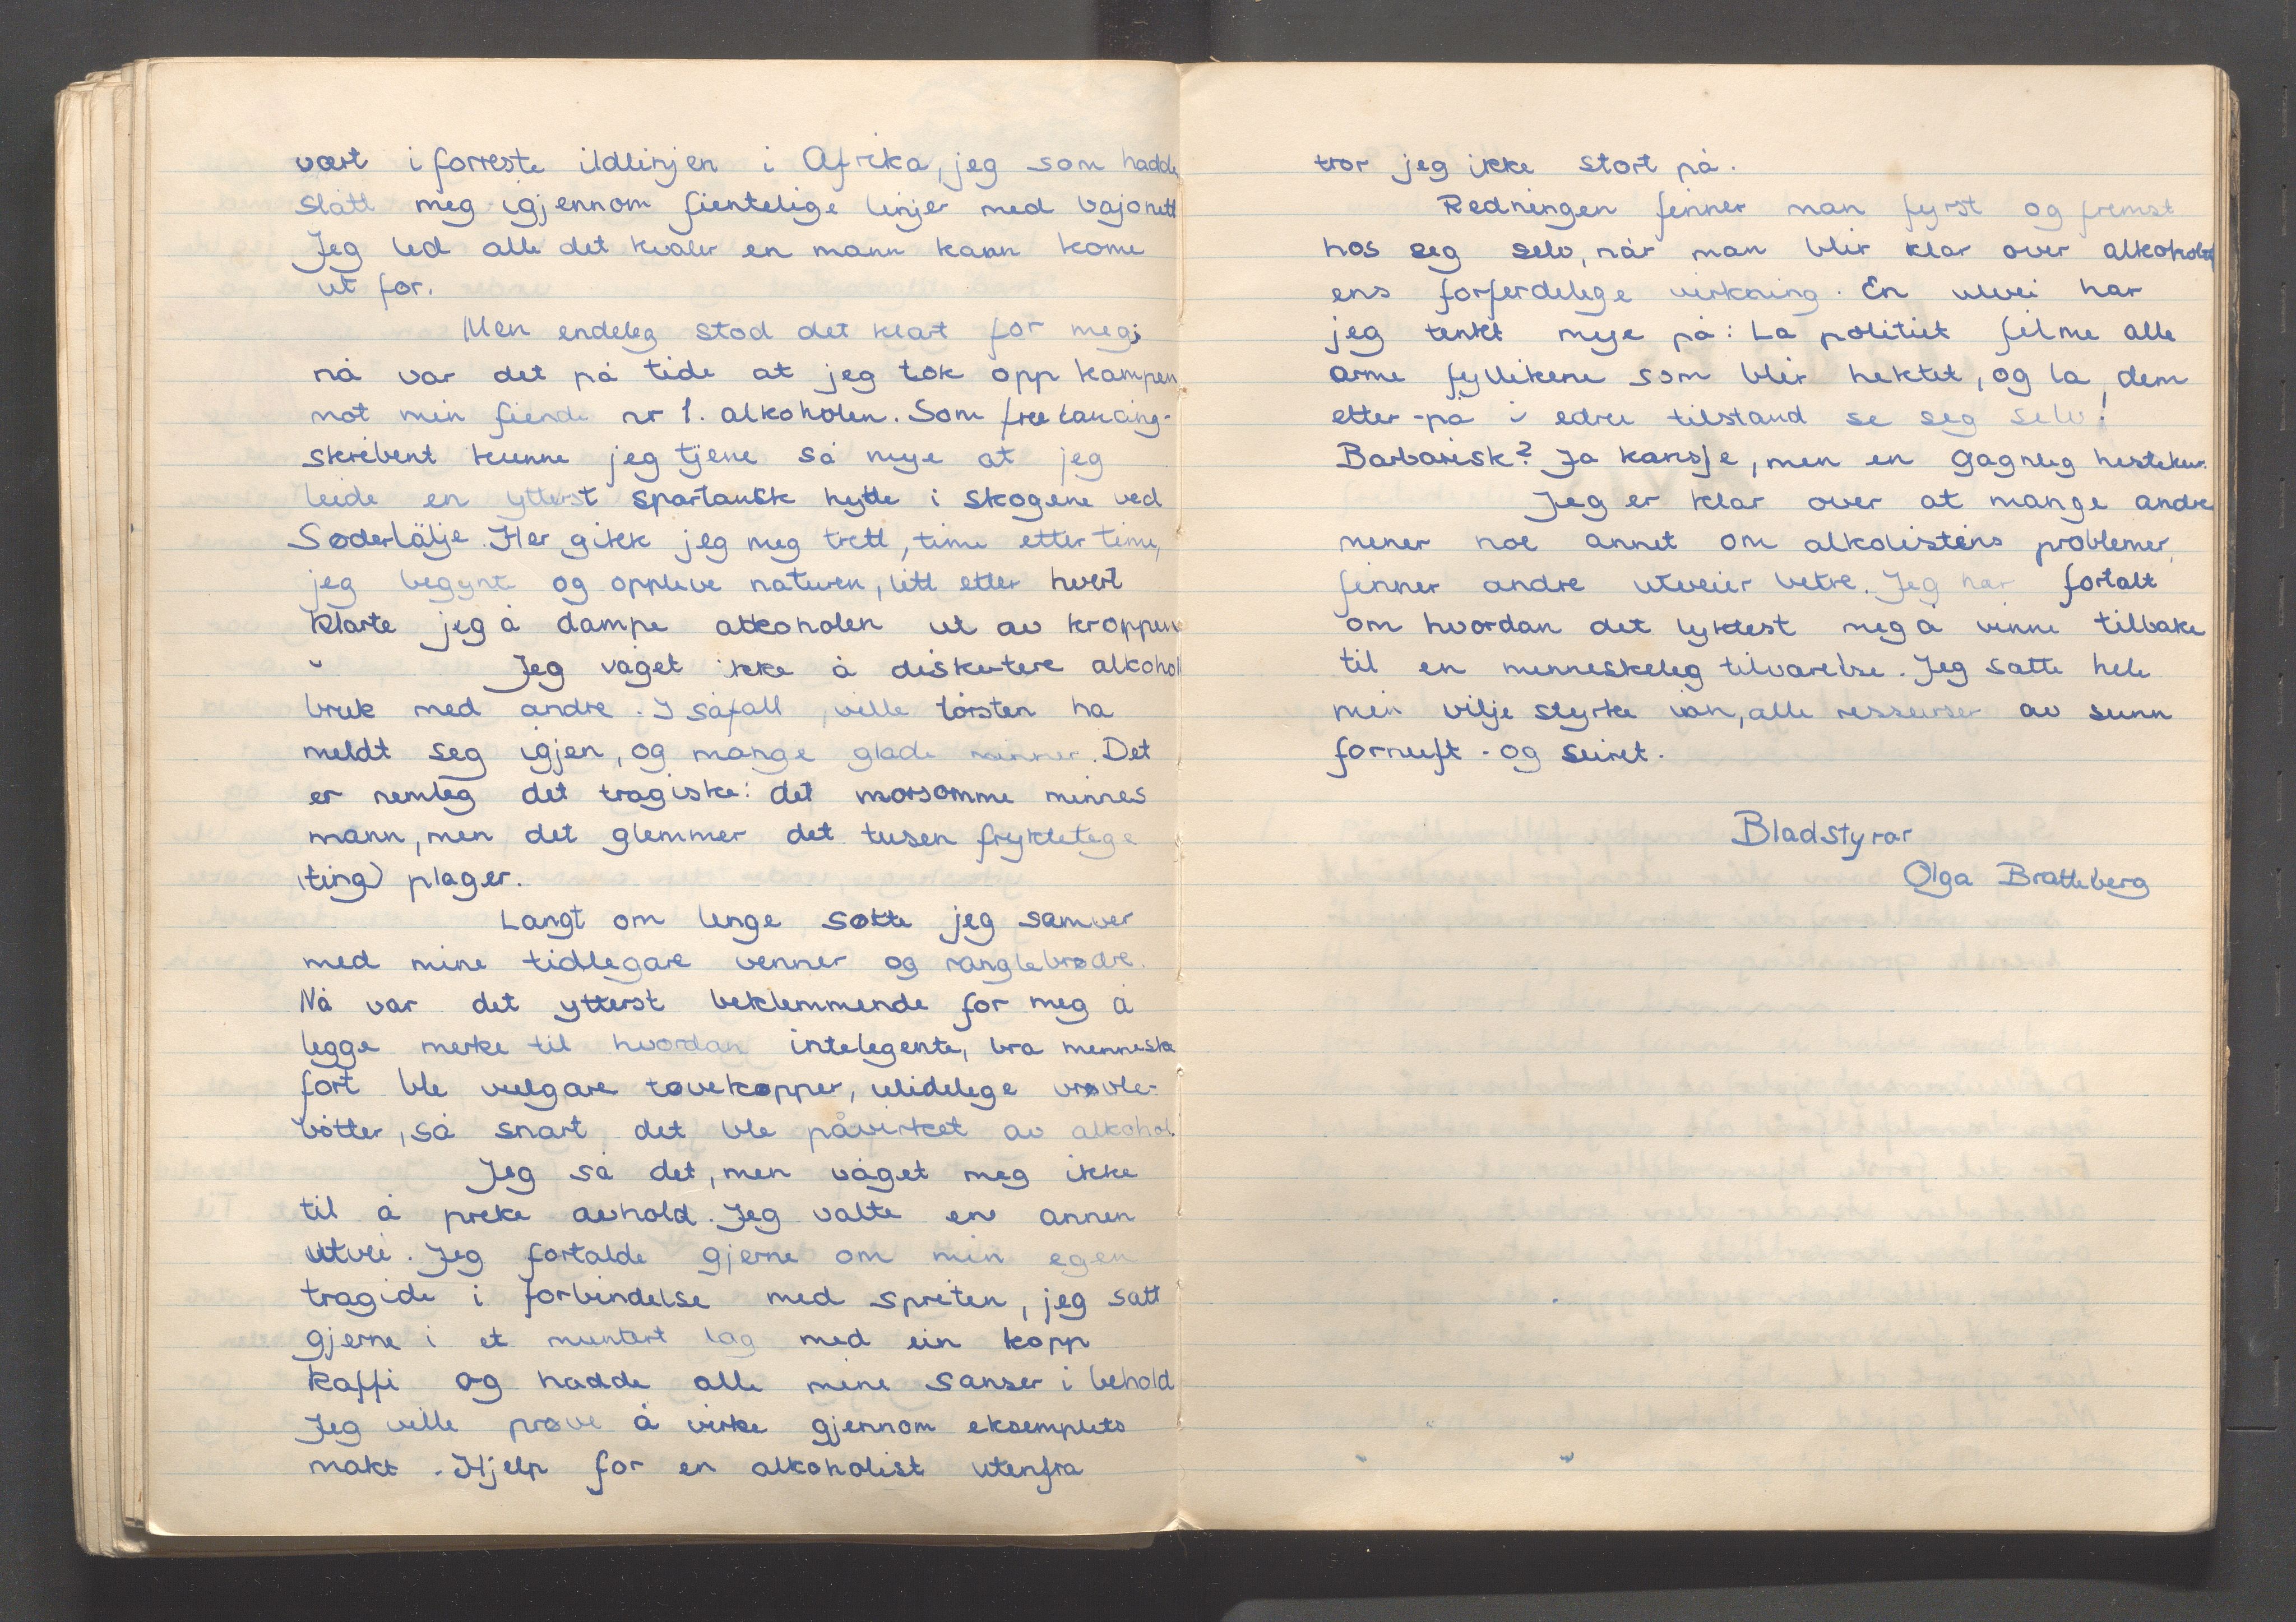 vært i forreste ildlinjen i Afrika, jeg som hadde
slått meg igjennom fientelige linjer med bajonett
Jeg led alle det kvaler en mann kann kome
ut for.
Men endeleg stod det klart for meg;
nå var det på tide at jeg tok opp kampen
mot min fiende nr 1. alkoholen. Som freelancing-
skribent kunne jeg tjene så mye at jeg
leide en ytterst spartansk hytte i skogene ved
Søderlälje. Her gikk jeg meg trett, time etter time,
jeg begynte og oppleve naturen, litt etter hvert
klarte jeg å dampe alkoholen ut av kroppen
Jeg våget ikke å diskutere alkohol
bruk med andre. I såfall ville tørsten ha
meldt seg igjen, og mange glade minner. Det
er nemleg det tragiske: det morsomme minnes
mann, men det glemmer det tusen fryktelege
(ting) plager.
Langt om lenge søkte jeg samver
med mine tidlegare venner og ranglebrødre.
Nå var det ytterst beklemmende for meg å
legge merke til hvordan intelegente, bra menneske
fort ble vulgare tøvekopper, ulidelege vrøvle-
bøtter, så snart det ble påvirket av alkohol.
Jeg så det, men våget meg ikke
til å preke avhold. Jeg valte en annen
utvei. Jeg fortalde gjerne om min egen
tragide i forbindelse med spriten, jeg satt
gjerne i et muntert lag med ein kopp
kaffi og hadde alle mine sanser i behold
Jeg ville prøve å virke gjennom eksemplets
makt. Hjelp for en alkoholist utenfra
tror jeg ikke stort på.
Redningen finner man fyrst og fremst
hos seg selv, når man blir klar over alkohol
ens forferdelege virkning. En utvei har
jeg tenkt mye på: La politiet filme alle
arme fyllikene som blir hektet, og la dem
etter-på i edru tilstand se seg selv!
Barbarisk? Ja kansje, men en gagnleg hestekur.
Jeg er klar over at mange andre
mener noe annet om alkolistens problemer,
finner andre utveier betre. Jeg har fortalt
om hvordan det lyktest meg å vinne tilbake
til en menneskeleg tilværelse. Jeg satte hele
min vilje styrke inn, alle ressurser av sunn
fornuft - og seiret.
Bladstyrar
Olga Bratteberg